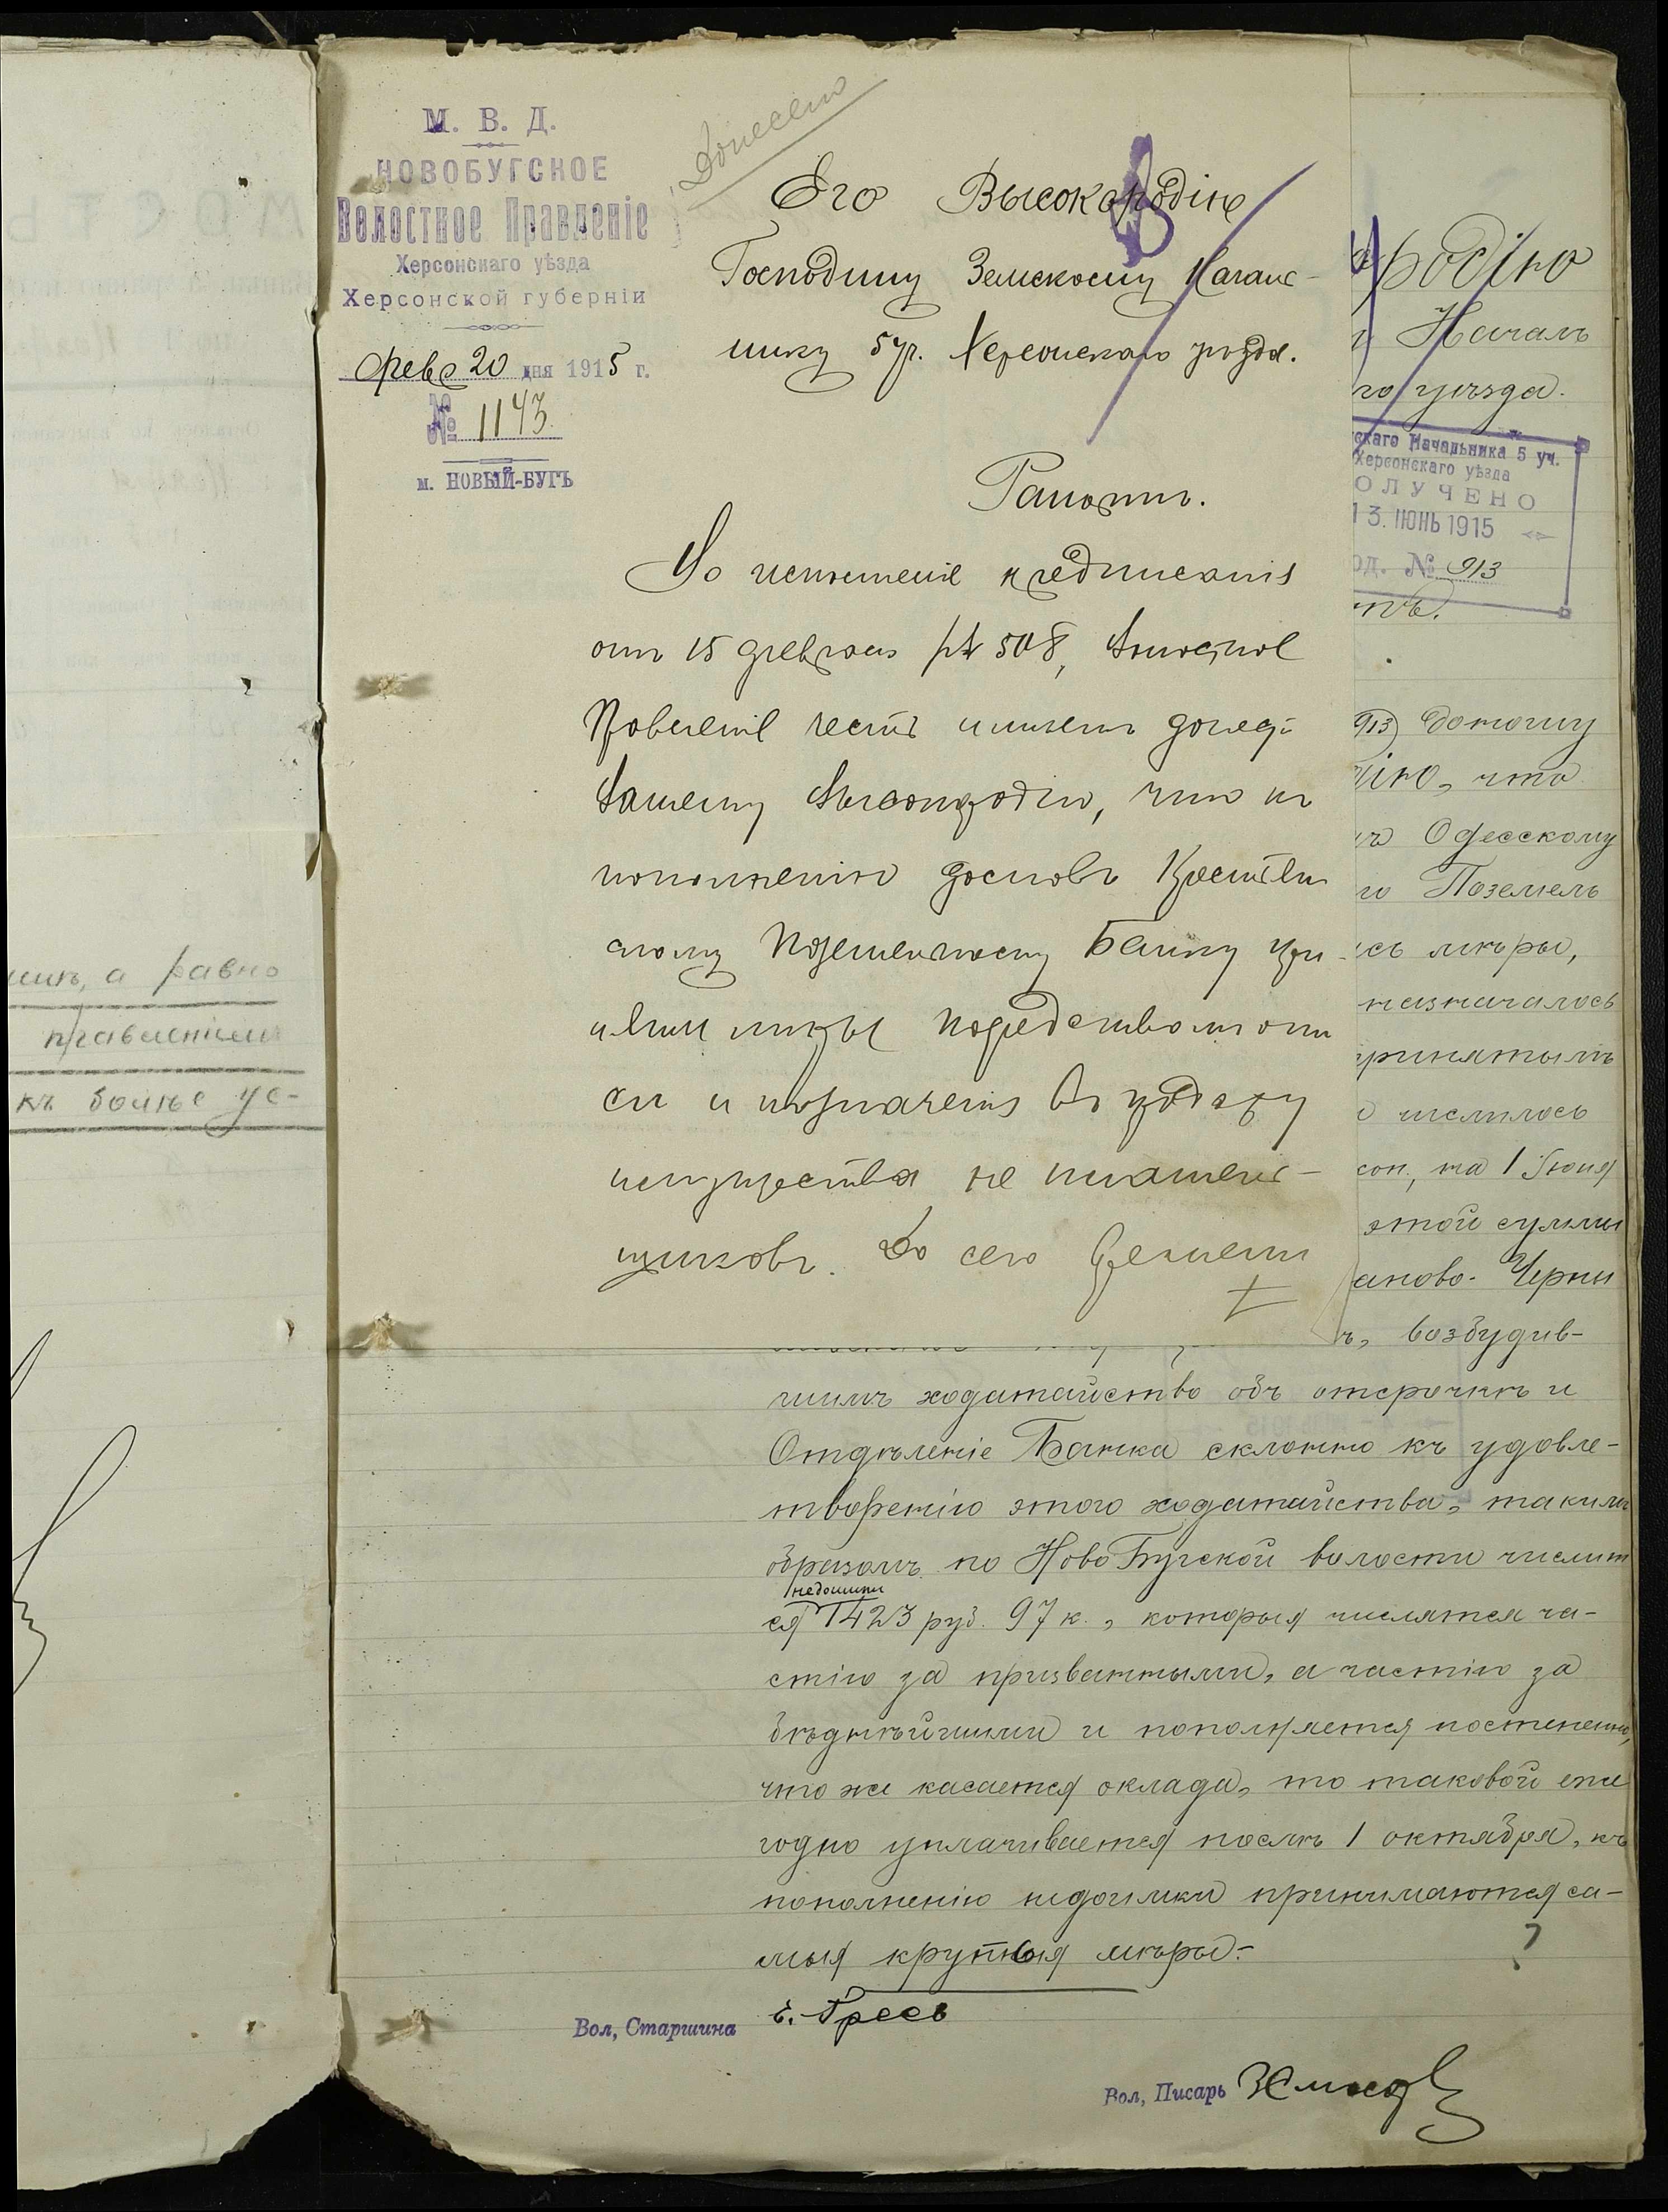 М. В. Д.
НОВОБУГСКОЕ
Волостное Правленіе
Херсонскаго уѣзда
Херсонской губерніи
Февр 20 дня 1915 г.
№ 1143
м. НОВЫЙ-БУГЪ
Донесено
Его Высокородію
Господину Земскому Началь-
нику 5 уч. Херсонскаго уѣзда.
Рапортъ.
Во исполненіе предписанія
отъ 15 февраля № 508, Волостное
Правленіе честь имѣетъ донести
Вашему Высокородію, что къ
пополненію долговъ Крестьян
скому Поземельному Банку при-
няты мѣры посредствомъ опи
си и назначенія въ продажу
имущества не платель-
щиковъ. До сего времени
шикъ, а равно
правленіемъ
къ болѣе ус-
родію
Началь
го уѣзда.
скаго Начальника 5 уч.
Херсонскаго уѣзда
ОЛУЧЕНО
13. ІЮНЬ 1915
од. № 913
тъ.
913) доношу
дію, что
Одесскому
го Поземель
сь мѣры,
назначалось
принятымъ
числилось
коп, на 1 Іюня
этой суммы
аново-Черни
возбудив-
шимъ ходатайство объ отсрочкѣ и
Отдѣленіе Банка склонно къ удовле-
творенію этого ходатайства, такимъ
образомъ по НовоБугской волости числит
недоимки
ся 1423 руб. 97 к., которыя числятся ча-
стію за призванными, а частію за
бѣднѣйшими и пополняется постепенно,
что же касается оклада, то таковой еже
годно уплачивается послѣ 1 октября, къ
пополненію недоимки принимаются са-
мыя крупныя мѣры.-
?
Вол, Старшина
Вол, Писарь